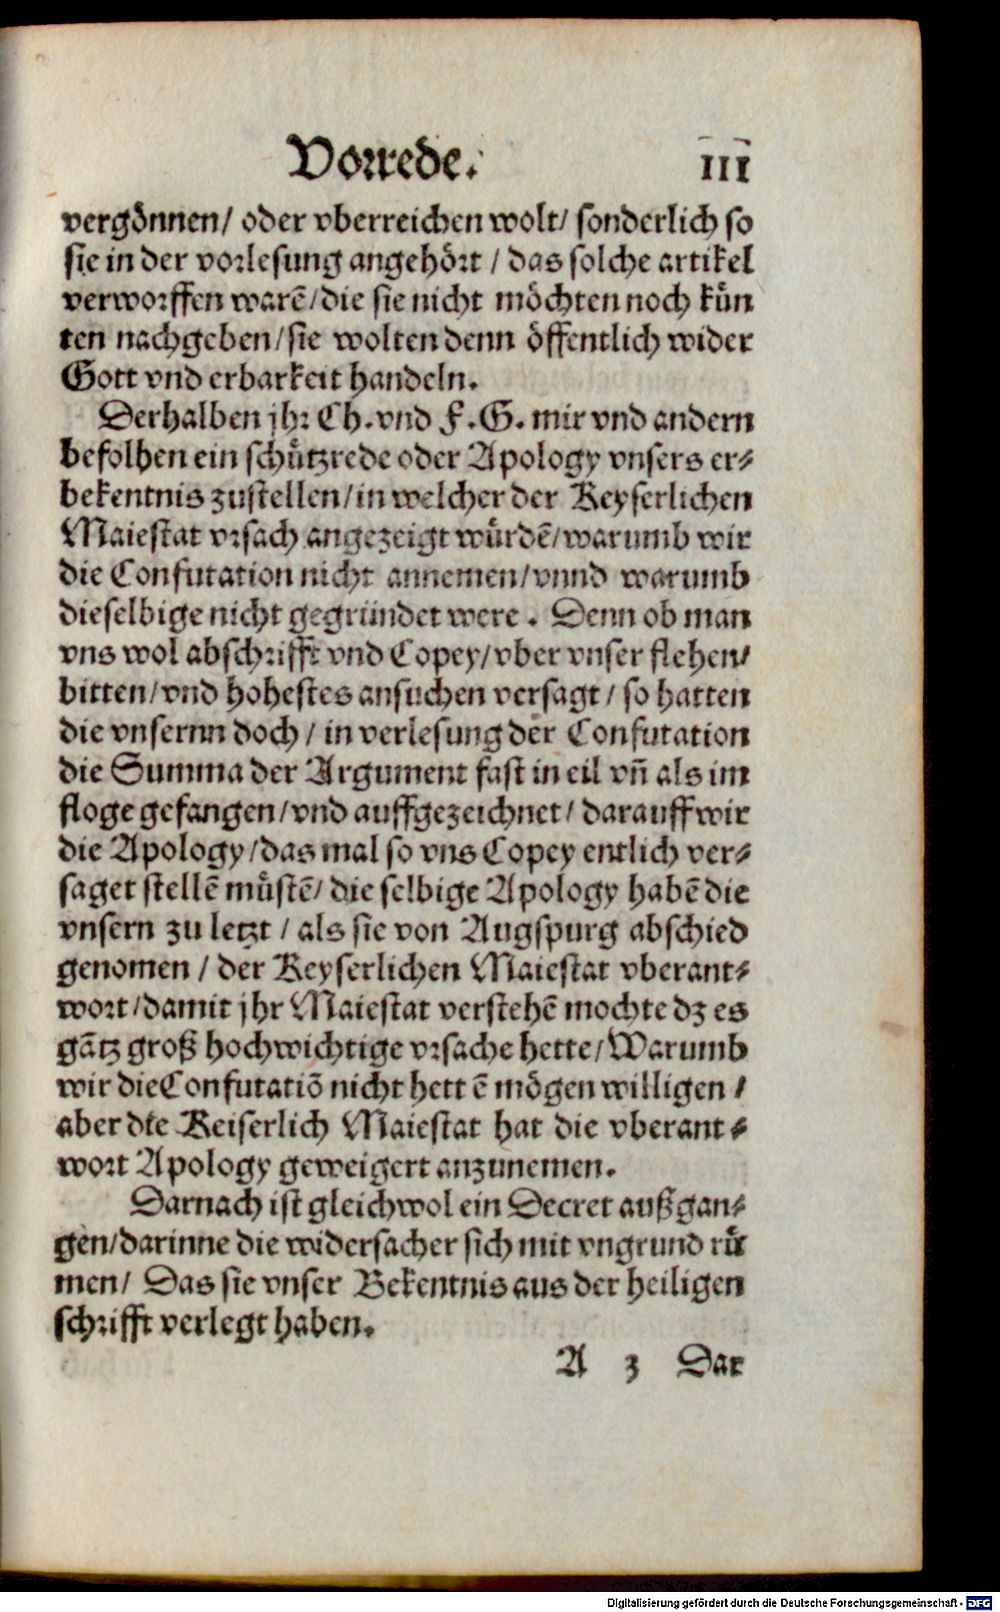 Vorrede. III
vergönnen/ oder vberreichen wolt/ sonderlich so
sie in der vorlesung angehört / das solche artikel
verworffen warē/die sie nicht möchten noch kün
ten nachgeben/sie wolten denn öffentlich wider
Gott vnd erbarkeit handeln.
Derhalben jhr Ch.vnd F.G. mir vnd andern
befolhen ein schützrede oder Apology vnsers er⸗
bekentnis zustellen/in welcher der Keyserlichen
Maiestat vrsach angezeigt würdē/warumb wir
die Confutation nicht annemen/vnnd warumb
dieselbige nicht gegründet were. Denn ob man
vns wol abschrifft vnd Copey/vber vnser flehen/
bitten/vnd hohestes ansuchen versagt/ so hatten
die vnsernn doch / in verlesung der Confutation
die Summa der Argument fast in eil vñ als im
floge gefangen/vnd auffgezeichnet/ darauff wir
die Apology/das mal so vns Copey entlich ver⸗
saget stellē müstē/ die selbige Apology habē die
vnsern zu letzt / als sie von Augspurg abschied
genomen / der Keyserlichen Maiestat vberant⸗
wort/damit jhr Maiestat verstehē mochte dz es
gātz groß hochwichtige vrsache hette/Warumb
wir die Confutatiō nicht hettē mögen willigen /
aber dte Keiserlich Maiestat hat die vberant⸗
wort Apology geweigert anzunemen.
Darnach ist gleichwol ein Decret außgan⸗
gen/darinne die widersacher sich mit vngrund rü
men/ Das sie vnser Bekentnis aus der heiligen
schrifft verlegt haben.
A 3 Dar
Digitalisierung gefördert durch die Deutsche Forschungsgemeinschaft - DFG